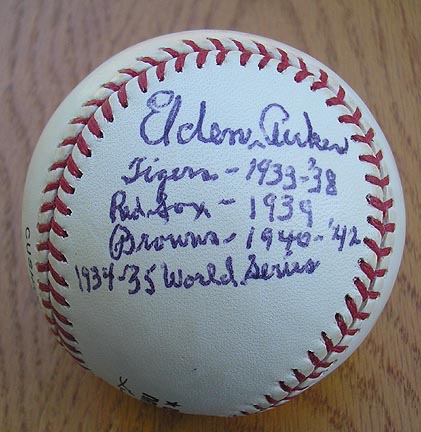 Elden Auker
Tigers - 1933-'38
Red Sox - 1939
Browns - 1940-'42
1934-35 World Series